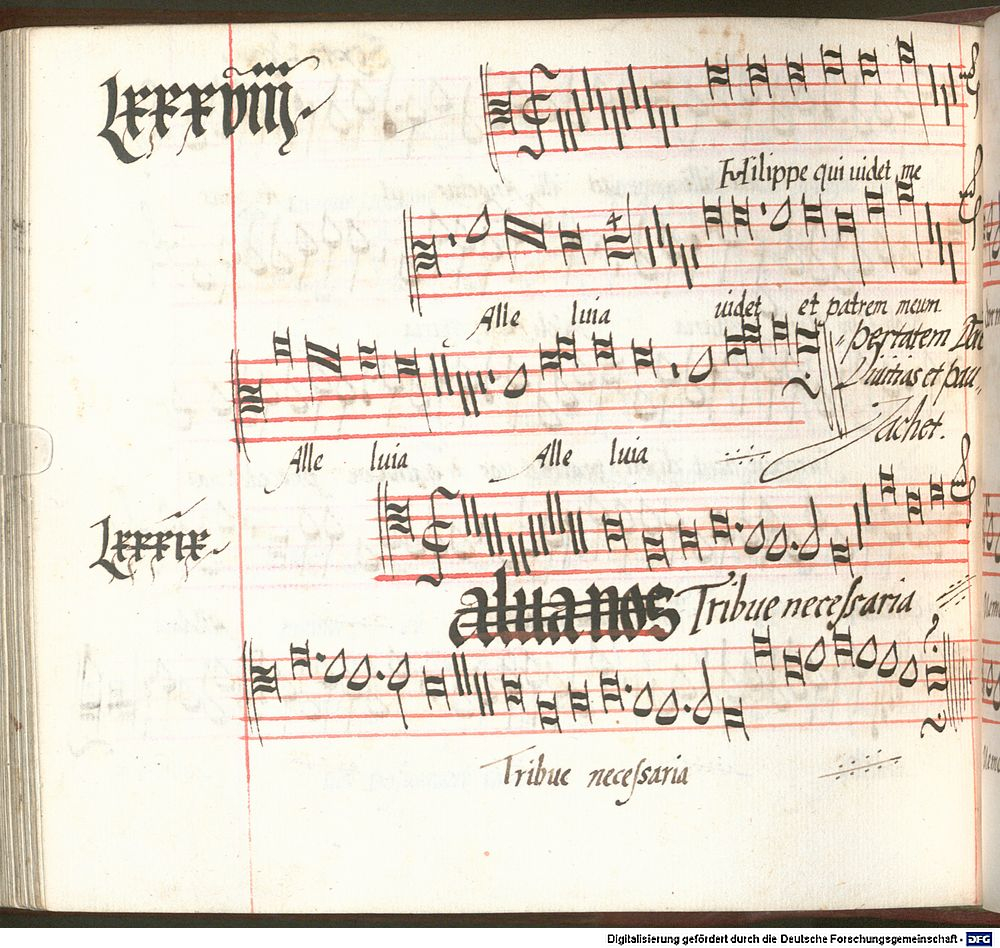 Lxxxviii.
Philippe qui uidet me
Alle luia uidet et patrem meum
pertatem
Diuitias et pau,
Jachet.
Alle luia Alle luia
Lxxxix
alua nos Tribue necessaria
Tribue necessaria
Digitalisierung gefördert durch die Deutsche Forschungsgemeinschaft - DFG